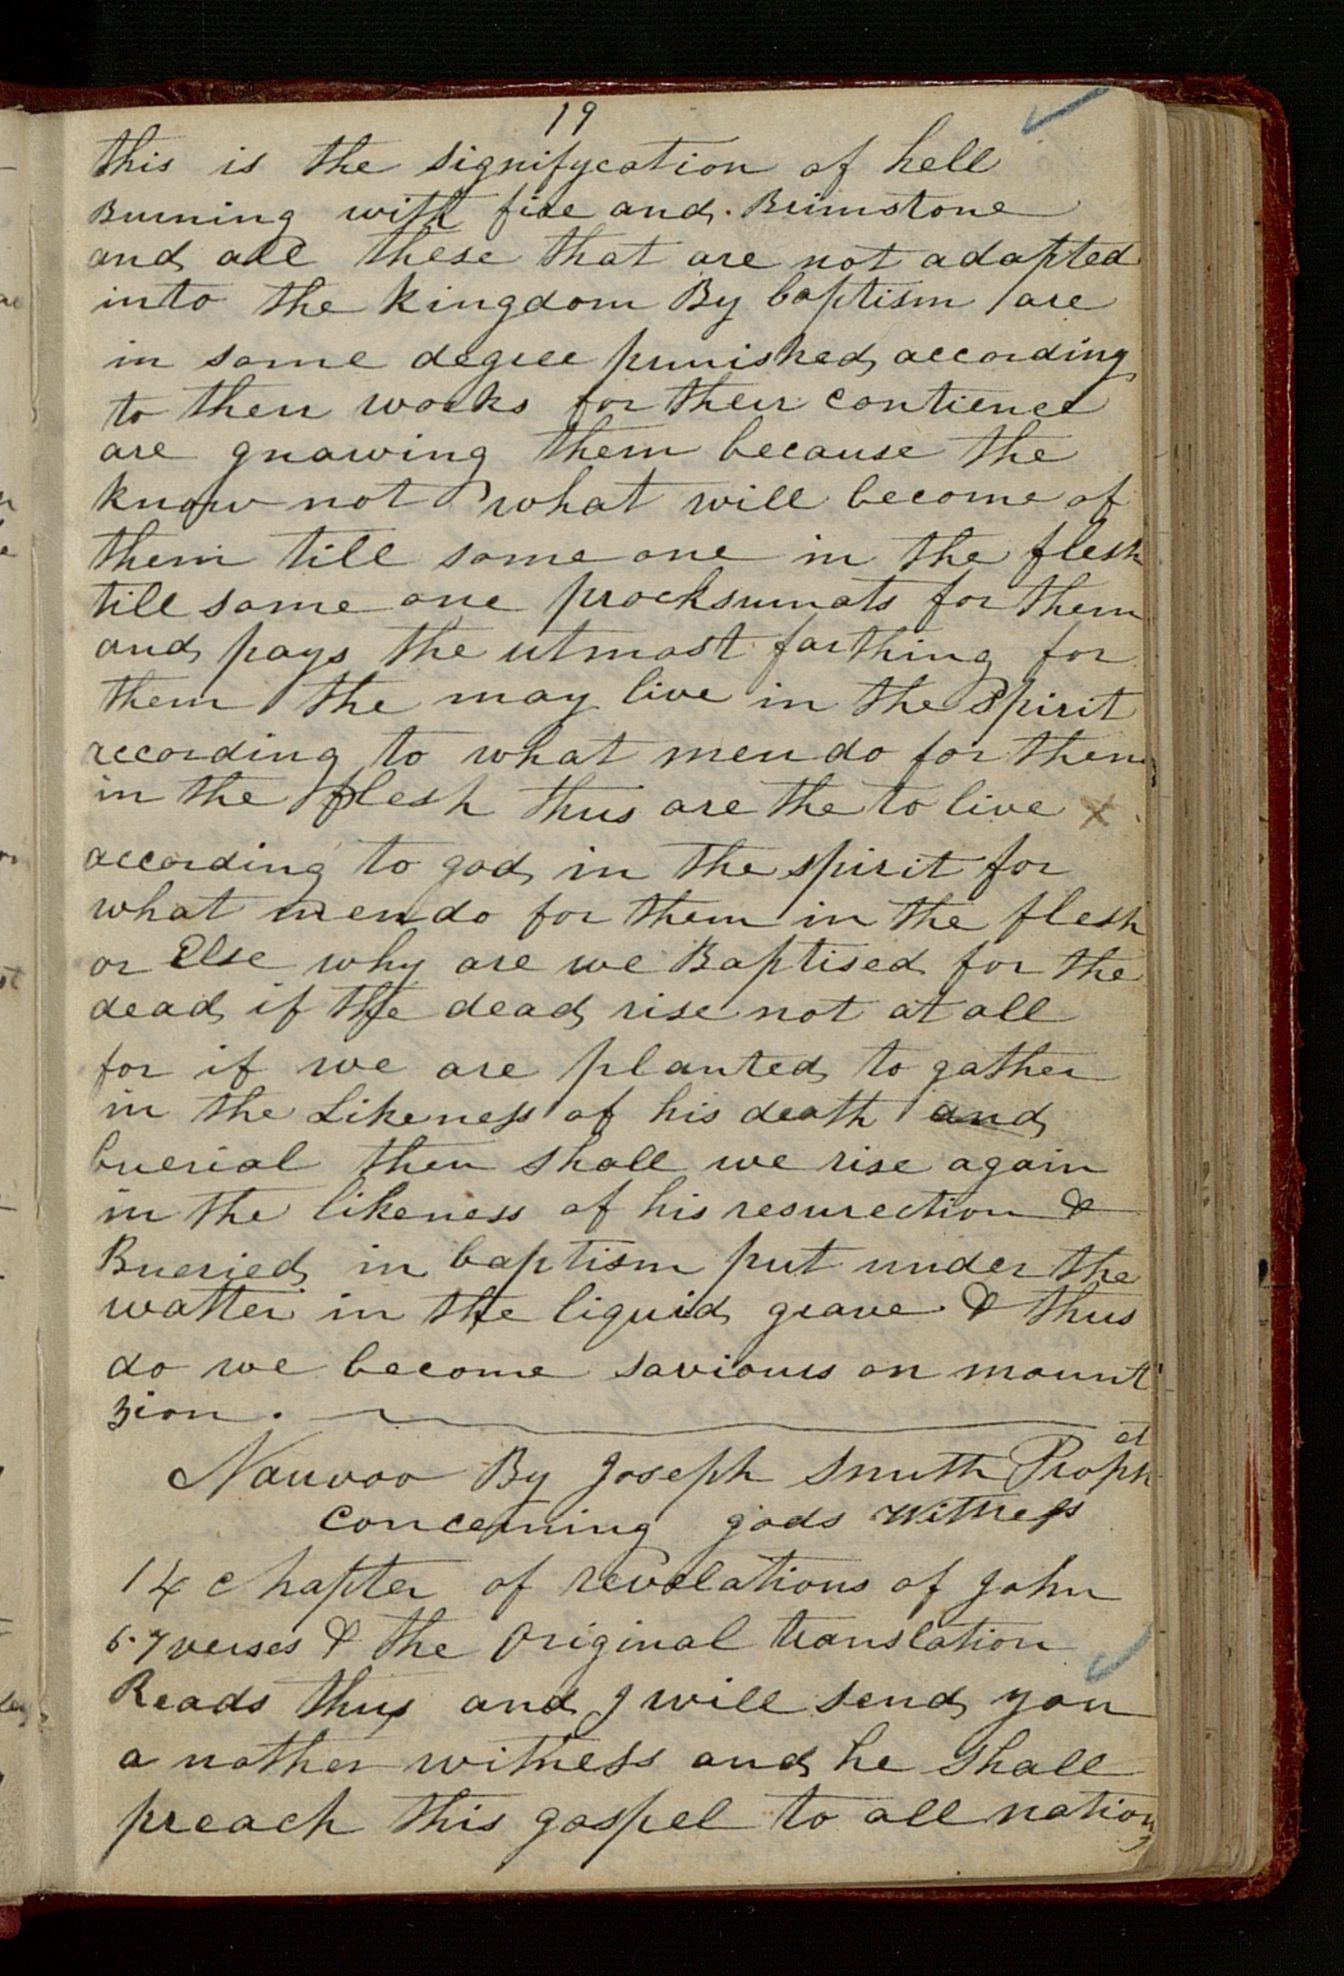 19
this is the signifycation of hell
Burning with fire and Brimstone
and all these that are not adopted
into the kingdom By baptism are
in some degree punished according
to their works for their contience
are gnawing them because the
know not what will become of
them till some one in the flesh
till some one procksumats for them
and pays the utmost farthing for
them the may live in the spirit
according to what men do for them
in the flesh thus are the to live x
according to god in the spirit for
what men do for them in the flesh
or Else why are we Baptised for the
dead if the dead rise not at all
for if we are planted to gather
in the Likeness of his death and
buerial then shall we rise again
in the likeness of his resurection &
Bueried in baptism put under the
watter in the liquid grave & thus
do we become saviours on mount
zion.
Nauvoo By Joseph Smith Prophet
concerning gods Witness
14 chapter of revelations of John
6.7 verses & the original translation
Reads thus and I will send you
a nother witness and he shall
preach this gospel to all nations